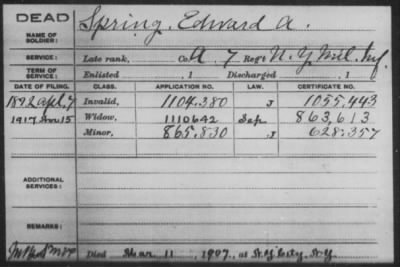 DEAD
NAME OF SOLDIER:
Spring, Edward A.
SERVICE:
Late rank, Co. A, 7 Reg't N.Y. Mil. Inf.
TERM OF SERVICE:
Enlisted , 1 Discharged , 1
DATE OF FILING. CLASS. APPLICATION NO. LAW. CERTIFICATE NO.
1892 Apl. 7 Invalid, 1104.380 J 1055.443
1917 Nov 15 Widow, 1110642 Sep 863,613
Minor, 865.830 J 628.357
ADDITIONAL SERVICES:
REMARKS:
Died Mar. 11, 1907, at N.Y. City, N.Y.